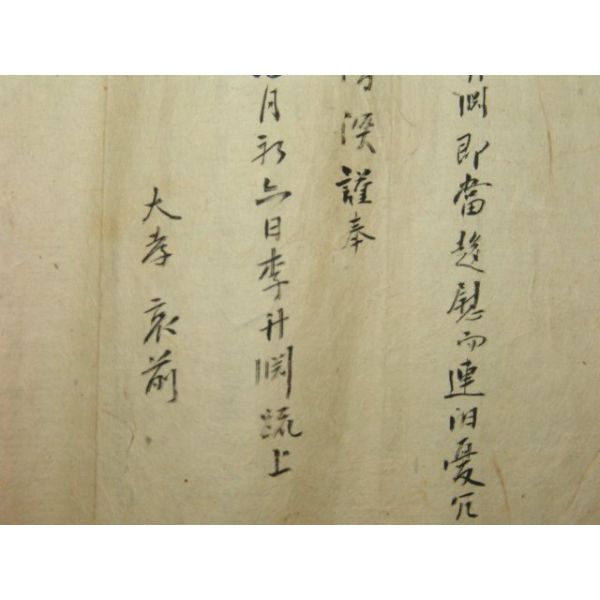 即當趍慰而連汨憂冗
謹奉
月初六日李升渕疏上
大孝 哀前